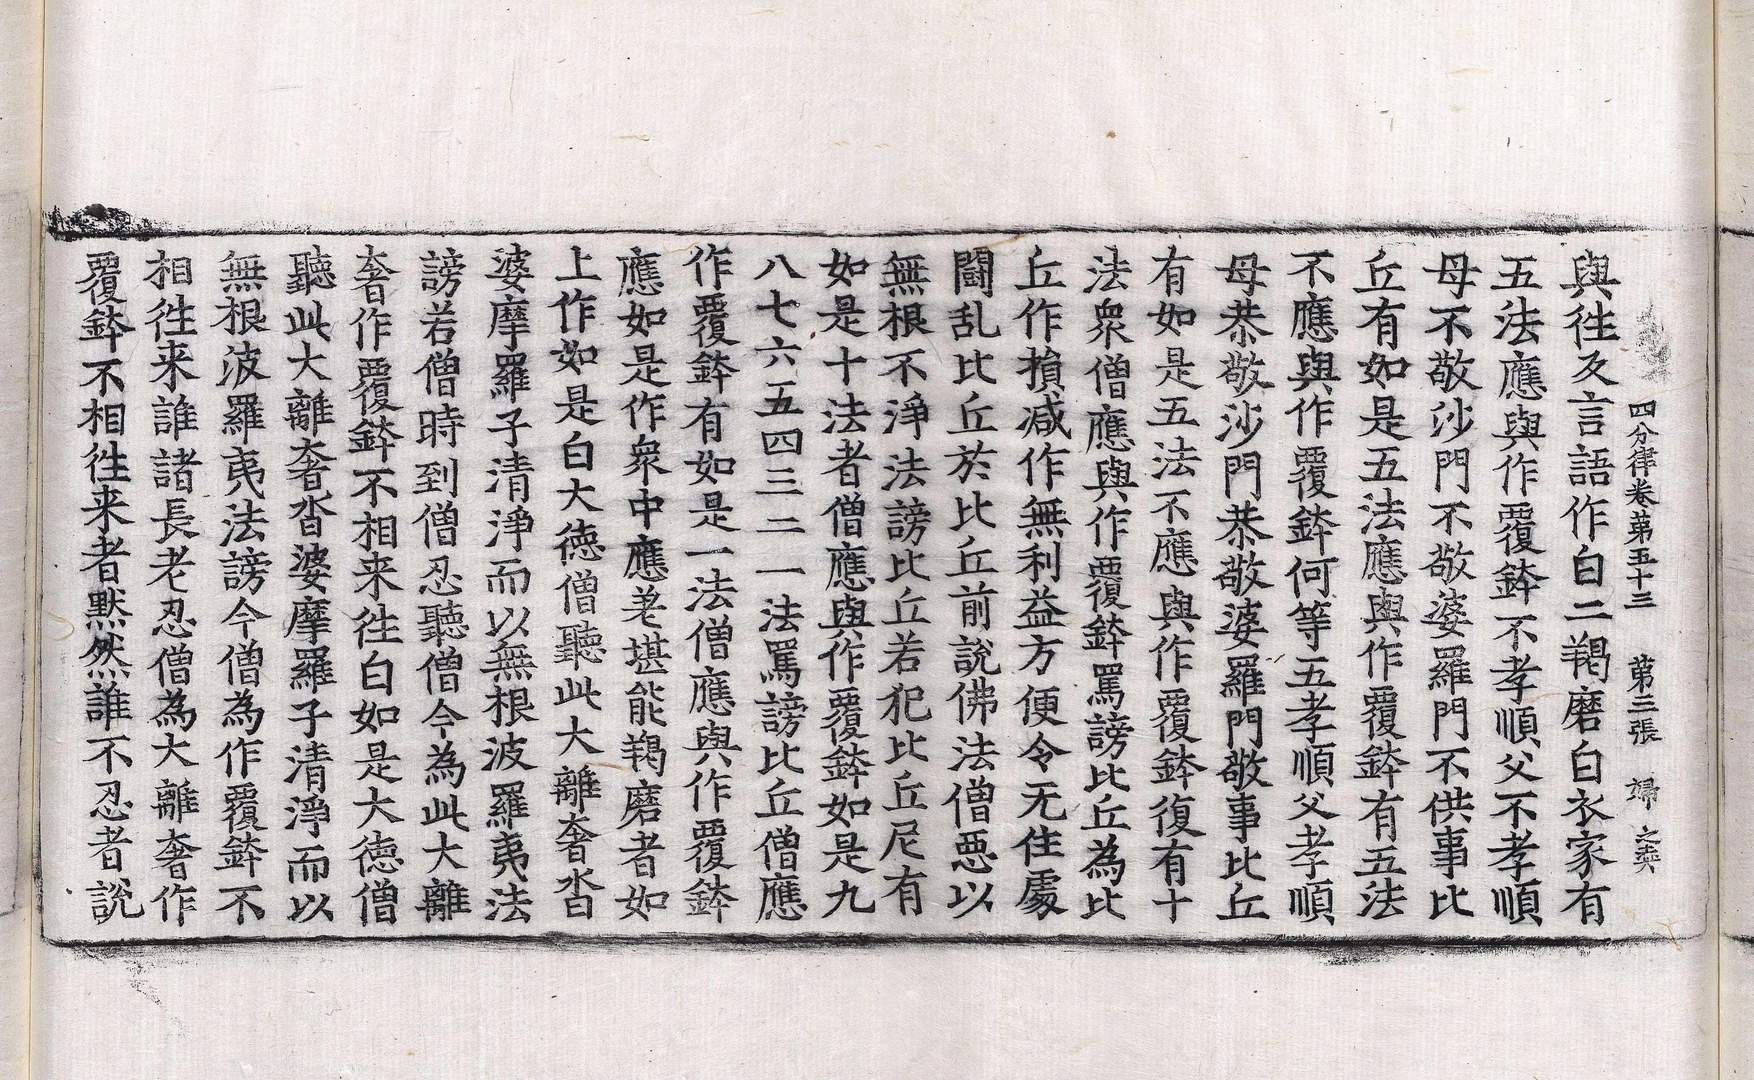 四分律卷第五十三 第三張 婦 之奕
與徃及言語作白二羯磨白衣家有
五法應與作覆鉢不孝順父不孝順
母不敬沙門不敬婆羅門不供事比
丘有如是五法應與作覆鉢有五法
不應與作覆鉢何等五孝順父孝順
母恭敬沙門恭敬婆羅門敬事比丘
有如是五法不應與作覆鉢復有十
法衆僧應與作覆鉢罵謗比丘為比
丘作損减作無利益方便令无住處
鬪乱比丘於比丘前說佛法僧惡以
無根不淨法謗比丘若犯比丘尼有
如是十法者僧應與作覆鉢如是九
八七六五四三二一法罵謗比丘僧應
作覆鉢有如是一法僧應與作覆鉢
應如是作衆中應差堪能羯磨者如
上作如是白大德僧聽此大離奢沓
婆摩羅子清淨而以無根波羅夷法
謗若僧時到僧忍聽僧今為此大離
奢作覆鉢不相来徃白如是大德僧
聽此大離奢沓婆摩羅子清淨而以
無根波羅夷法謗今僧為作覆鉢不
相徃来誰諸長老忍僧為大離奢作
覆鉢不相徃来者默然誰不忍者說